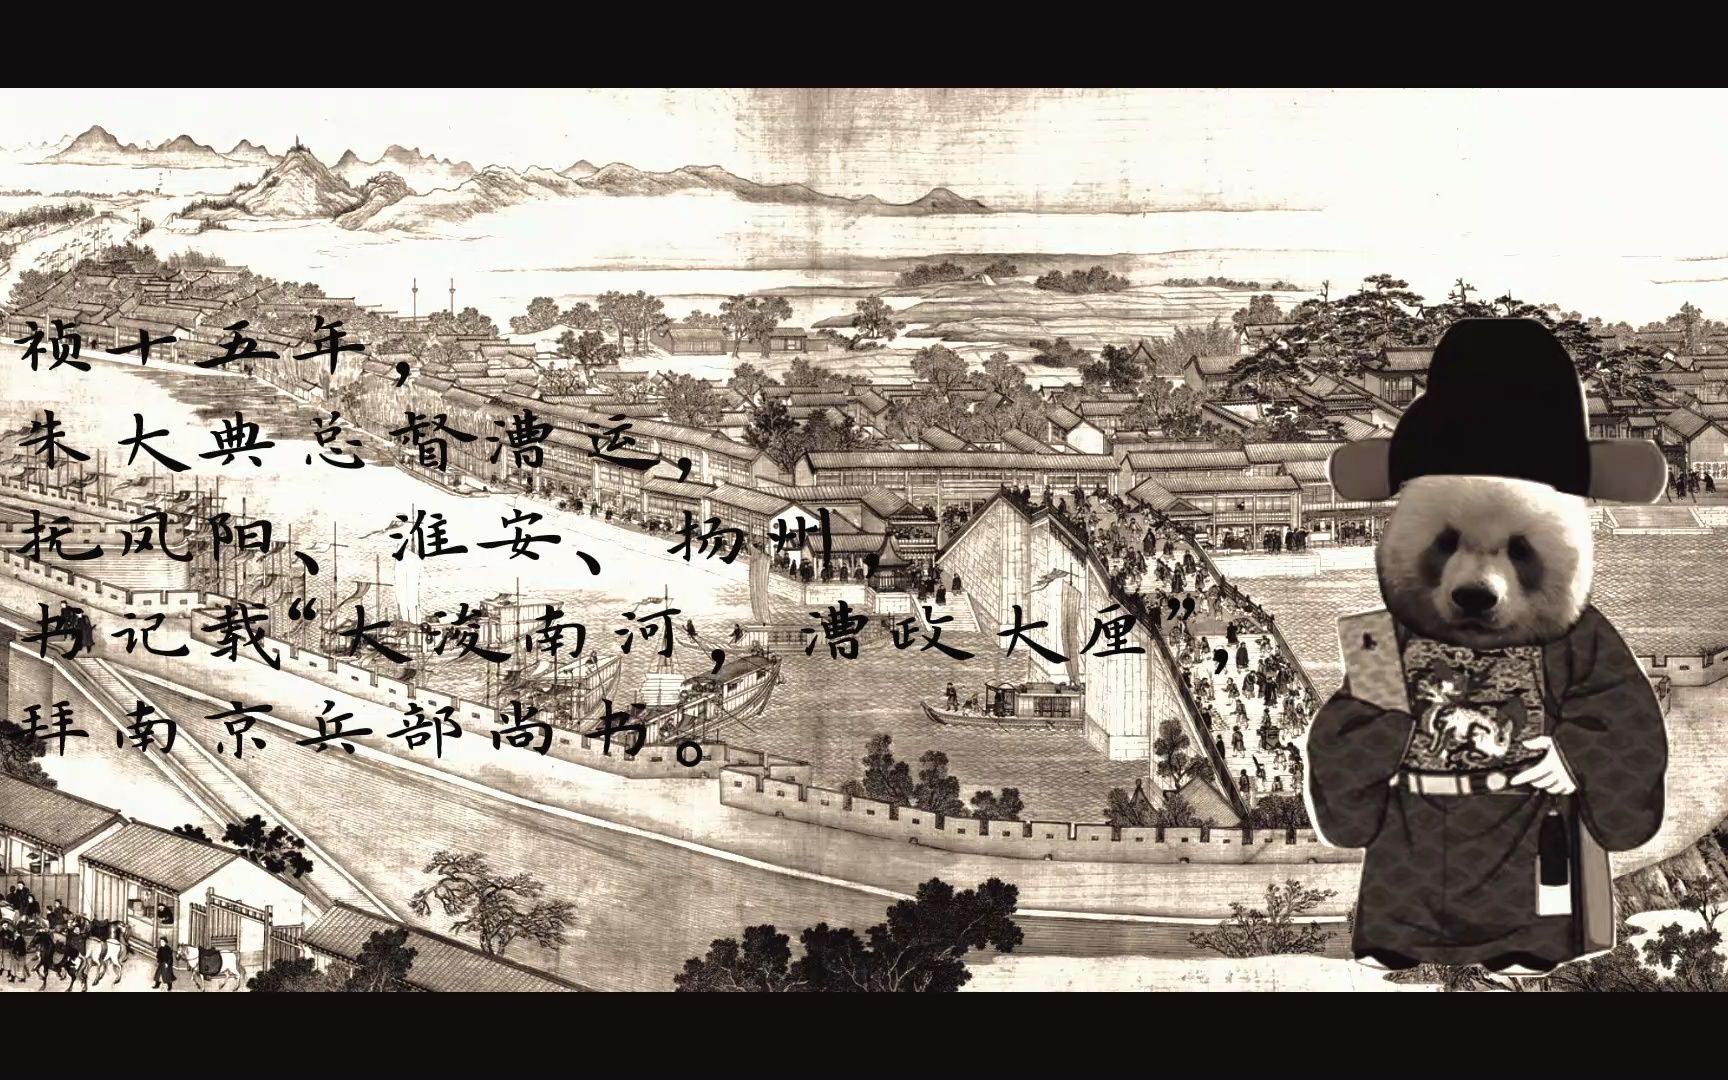 祯十五年，
朱大典总督漕运，
抚凤阳、淮安、扬州，
书记载“大浚南河，漕政大厘”，
拜南京兵部尚书。